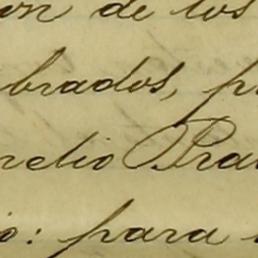 on de los
brados, p
relio Pra
o: para